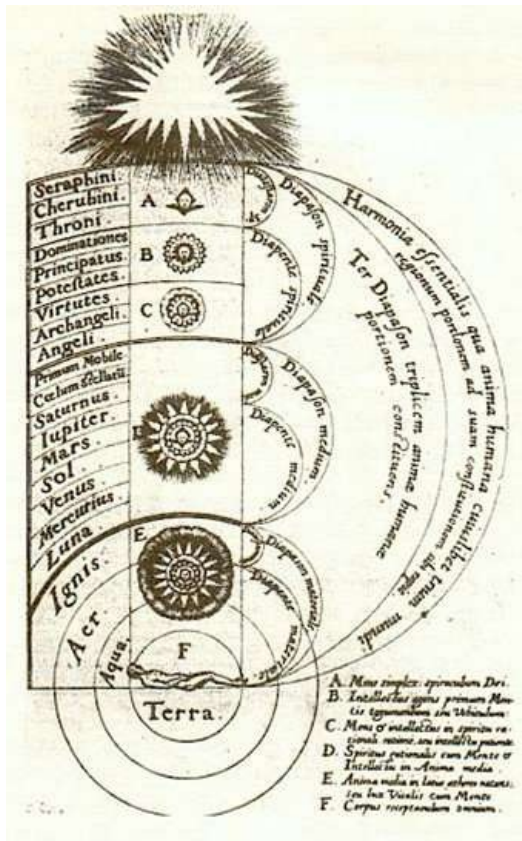 Seraphini.
Cherubini.
Throni.
Dominationes
Principatus.
Potestates.
Virtutes.
Archangeli.
Angeli.
Primum Mobile
Cœlum
Saturnus.
Iupiter.
Mars.
Sol.
Venus.
Mercurius.
Luna.
Ignis.
Aer.
Aqua.
Terra.
A
B
C
E
F
Diapason spirituale.
Diapente spirituale
Diapason medium.
Diapente medium.
Diapason materiale
Diapente materiale.
Harmonia essentialis qua anima humana cuiuslibet trium mundi
regionum portionem ad suam constitutionem sibi
Ter Diapason triplicem animæ humanæ
portionem constituens.
A. Mens simplex: spiraculum Dei.
B. Intellectus primum Men-
tis seu Vehiculum:
C. Mens & intellectus in spiritu ra-
tionali seu intellectu
D. Spiritus rationalis cum Mente &
Intellectu in Anima media
E. Anima media in natans;
seu lux Vitalis cum Mente
F. Corpus receptaculum omnium.